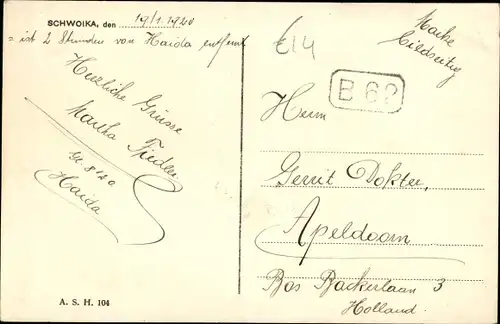 SCHWOIKA, den 19/1. 1920
= ist 2 Stunden von Haida entfernt
Herzliche Grüsse
Martha Fiedler
Haida
£14
Marke
Bildseitig
B 62
Herrn
Gerrit Dokter,
Apeldoorn
Bas Backerlaan 3
Holland.
A. S. H. 104